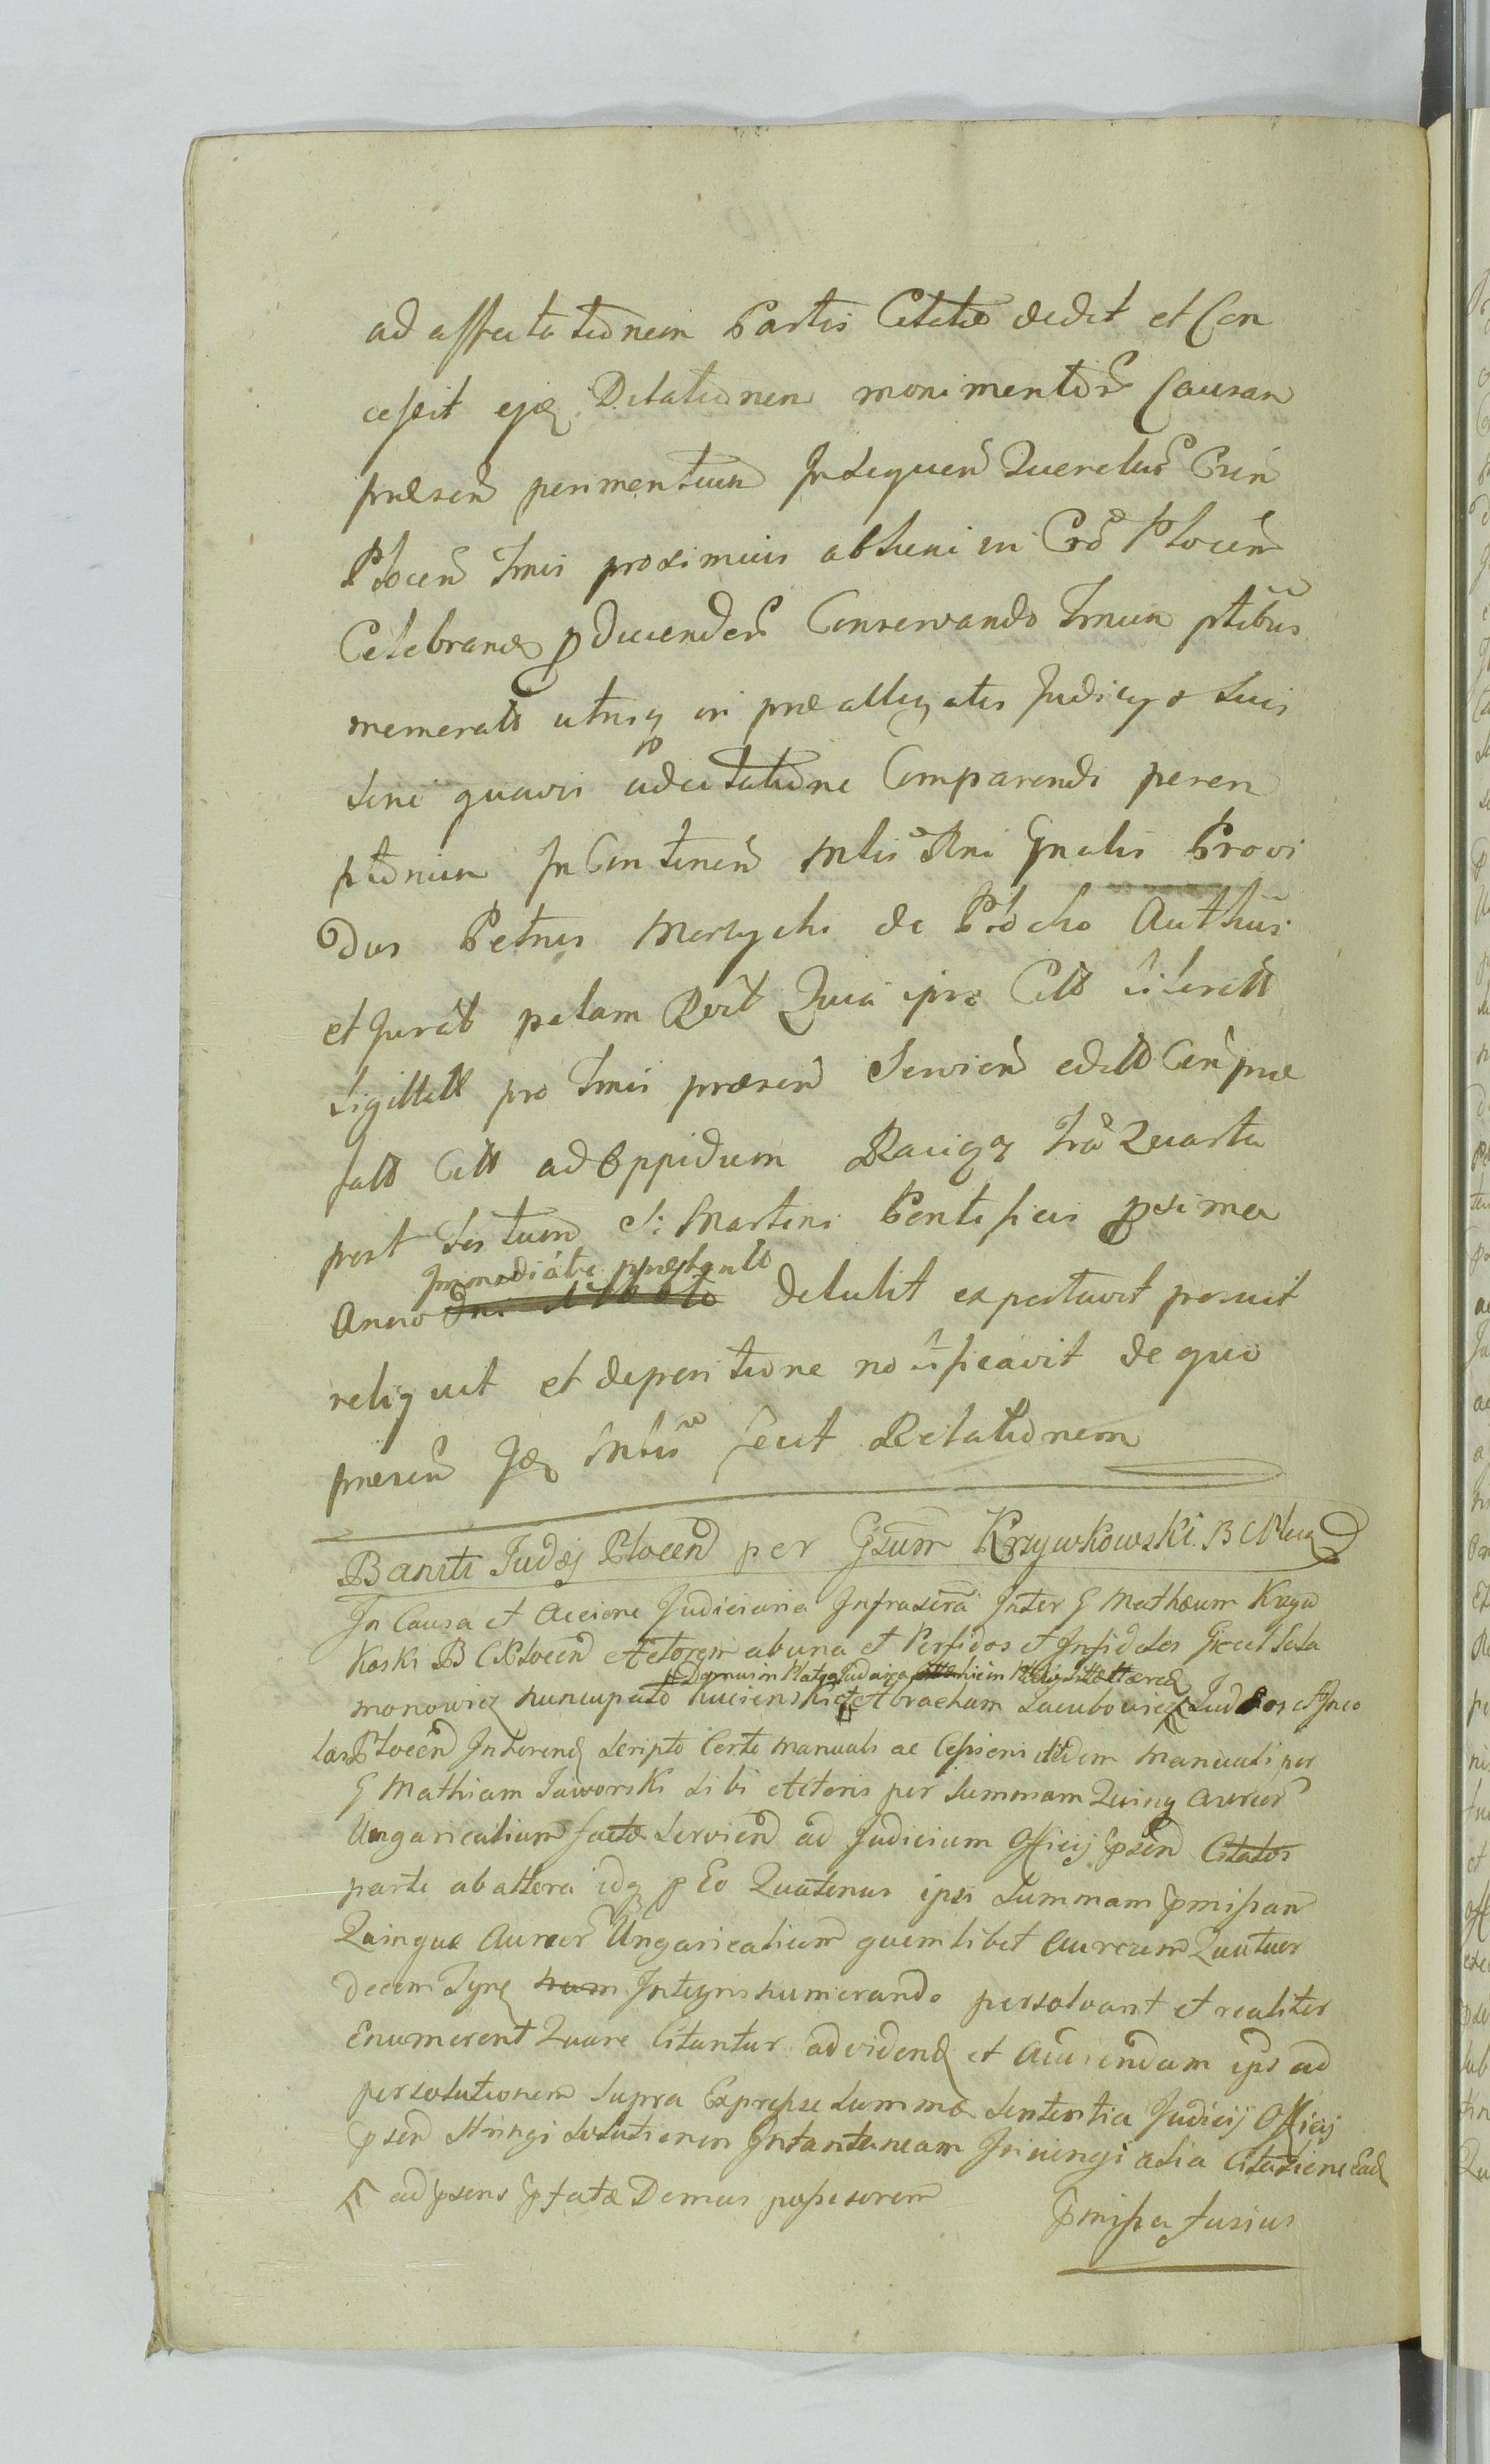 ad affectationem Partis Citatæ dedit et Con
cessit ejq Dilationem monimentor Causam
præsen perimentium In sequen Querelar Cren
Plocen Tmis proximius ab heni in Cro Plocen
Celebrand pducender Conservando Tmum ptibus
memoratis utrisq in præallegatis Judicys suis
sine quavis adcitatione Comparendi peren
ptorium In Continen Mltis Rni Gnalis Provi
dus Petrus de Plocko Authus
et Jurat palam Rvit Quia ipse Citt literall
Sigillatt pro Tmis præsen Servien editt Cen præ
fatt Citt ad Oppidum Raciqz fria Quarta
post festum S: Martini Pontificis pxima
Immediate præterito
Anno detulit exportavit posuit
reliquit et depositione notificavit de quo
præsen Jdq Mltis fecit Relationem
Baniti Judæj Plocen per Gsum Krzywkowski B C Ploc
In Causa et Accione Judiciaria Infrascra Inter G Mathæum Krzyw
koski B C Plocen Actorem ab una et Perfidos et Infideles Giecel Sala
Domus in Platea Judaica hic in
monowicz nuncupato et Abraham Jacubowicz Judæos et Inco
las Plocen Inhærend Scripto Certo Manuali ac Cessioni itidem Manuali per
G Mathiam Jaworski sibi Actoris per Summam Quinq Aureor
Ungaricalium factæ Servien ad Judicium Officij psen Citatos
parte ab altera idq p Eo Quatenus ipsi Summam pmissam
Quinque Aureor Ungaricalium quemlibet Aureum Quatuor
decem Tynf num Integris numerando persolvant et realiter
Enumerent Quare Citantur ad vidend et Audiendum ips ad
persolutionem supra Expressæ Summæ Sententia Judicij Officij
psen Stringi Solutionem Instantaneam Iniungi alia Citatione Ead
ad psens pfatæ Domus possessorem
pmissa fusius